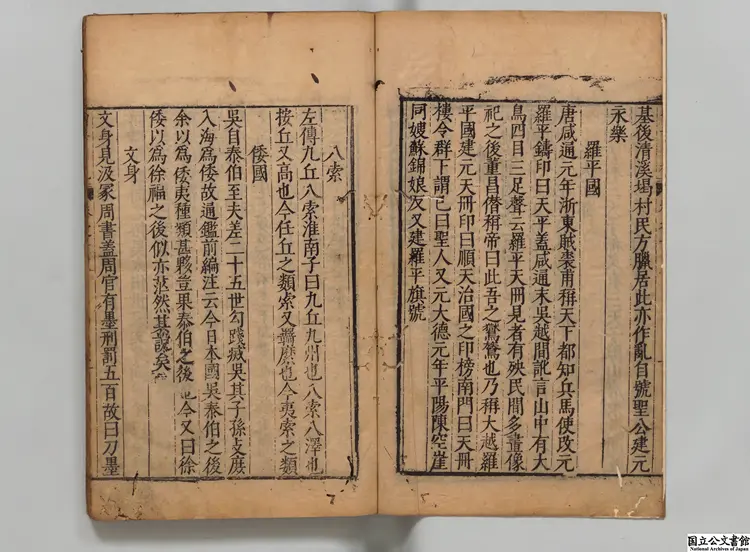 基後清溪堨村民方臘居此亦作亂自號聖公建元
永樂
羅平國
唐咸通元年浙東賊裘甫稱天下都知兵馬使改元
羅平鑄印曰天平蓋咸通末吳越間訛言山中有大
鳥四目三足聲云羅平天冊見者有殃民間多畫像
祀之後董昌僭稱帝曰此吾之鸑鷟也乃稱大越羅
平國建元天冊印曰順天治國之印榜南門曰天冊
樓令群下謂己曰聖人又元大德元年平陽陳空崖
同嫂蘇錦娘反又建羅平旗號
八索
左傳九丘八索淮南子曰九丘九州也八索八澤也
按丘又高也今任丘之類索又羈縻也今夷索之類
倭國
吳自泰伯至夫差二十五世勾踐滅吳其子孫支庶
入海為倭故通鑑前編注云今日本國吳泰伯之後
余以為倭夷種類甚夥豈果泰伯之後也今又曰徐
倭以為徐福之後似亦茫然其說矣
文身
文身見汲冢周書蓋周官有墨刑罰五百故曰刀墨
国立公文書館
National Archives of Japan